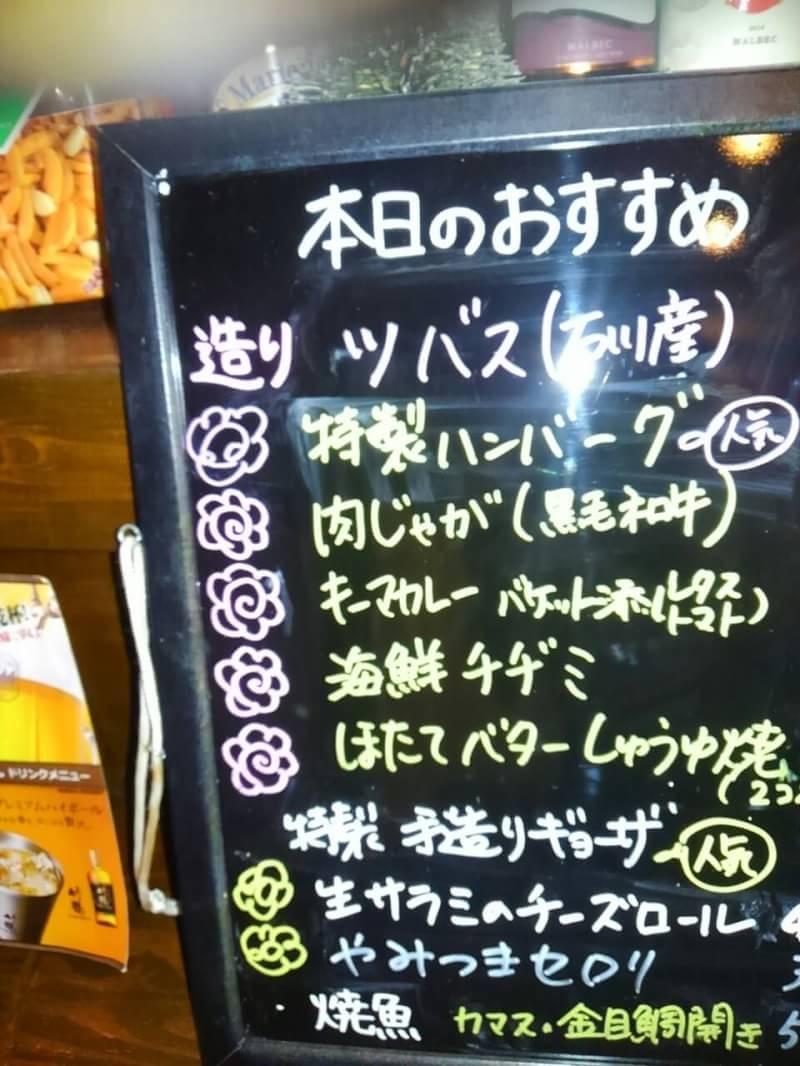 MALBEC
MALBEC
本日のおすすめ
造り ツバス(石川産)
特製ハンバーグ 人気
肉じゃが(黒毛和牛)
キーマカレー バケット添(レタストマト)
海鮮チヂミ
ほたてバターしゅうゆ焼
(2コ
特製 手造りギョーザ 人気
生サラミのチーズロール
やみつきセロリ
焼魚 カマス・金目鯛開き
ドリンクメニュー
プレミアムハイボール